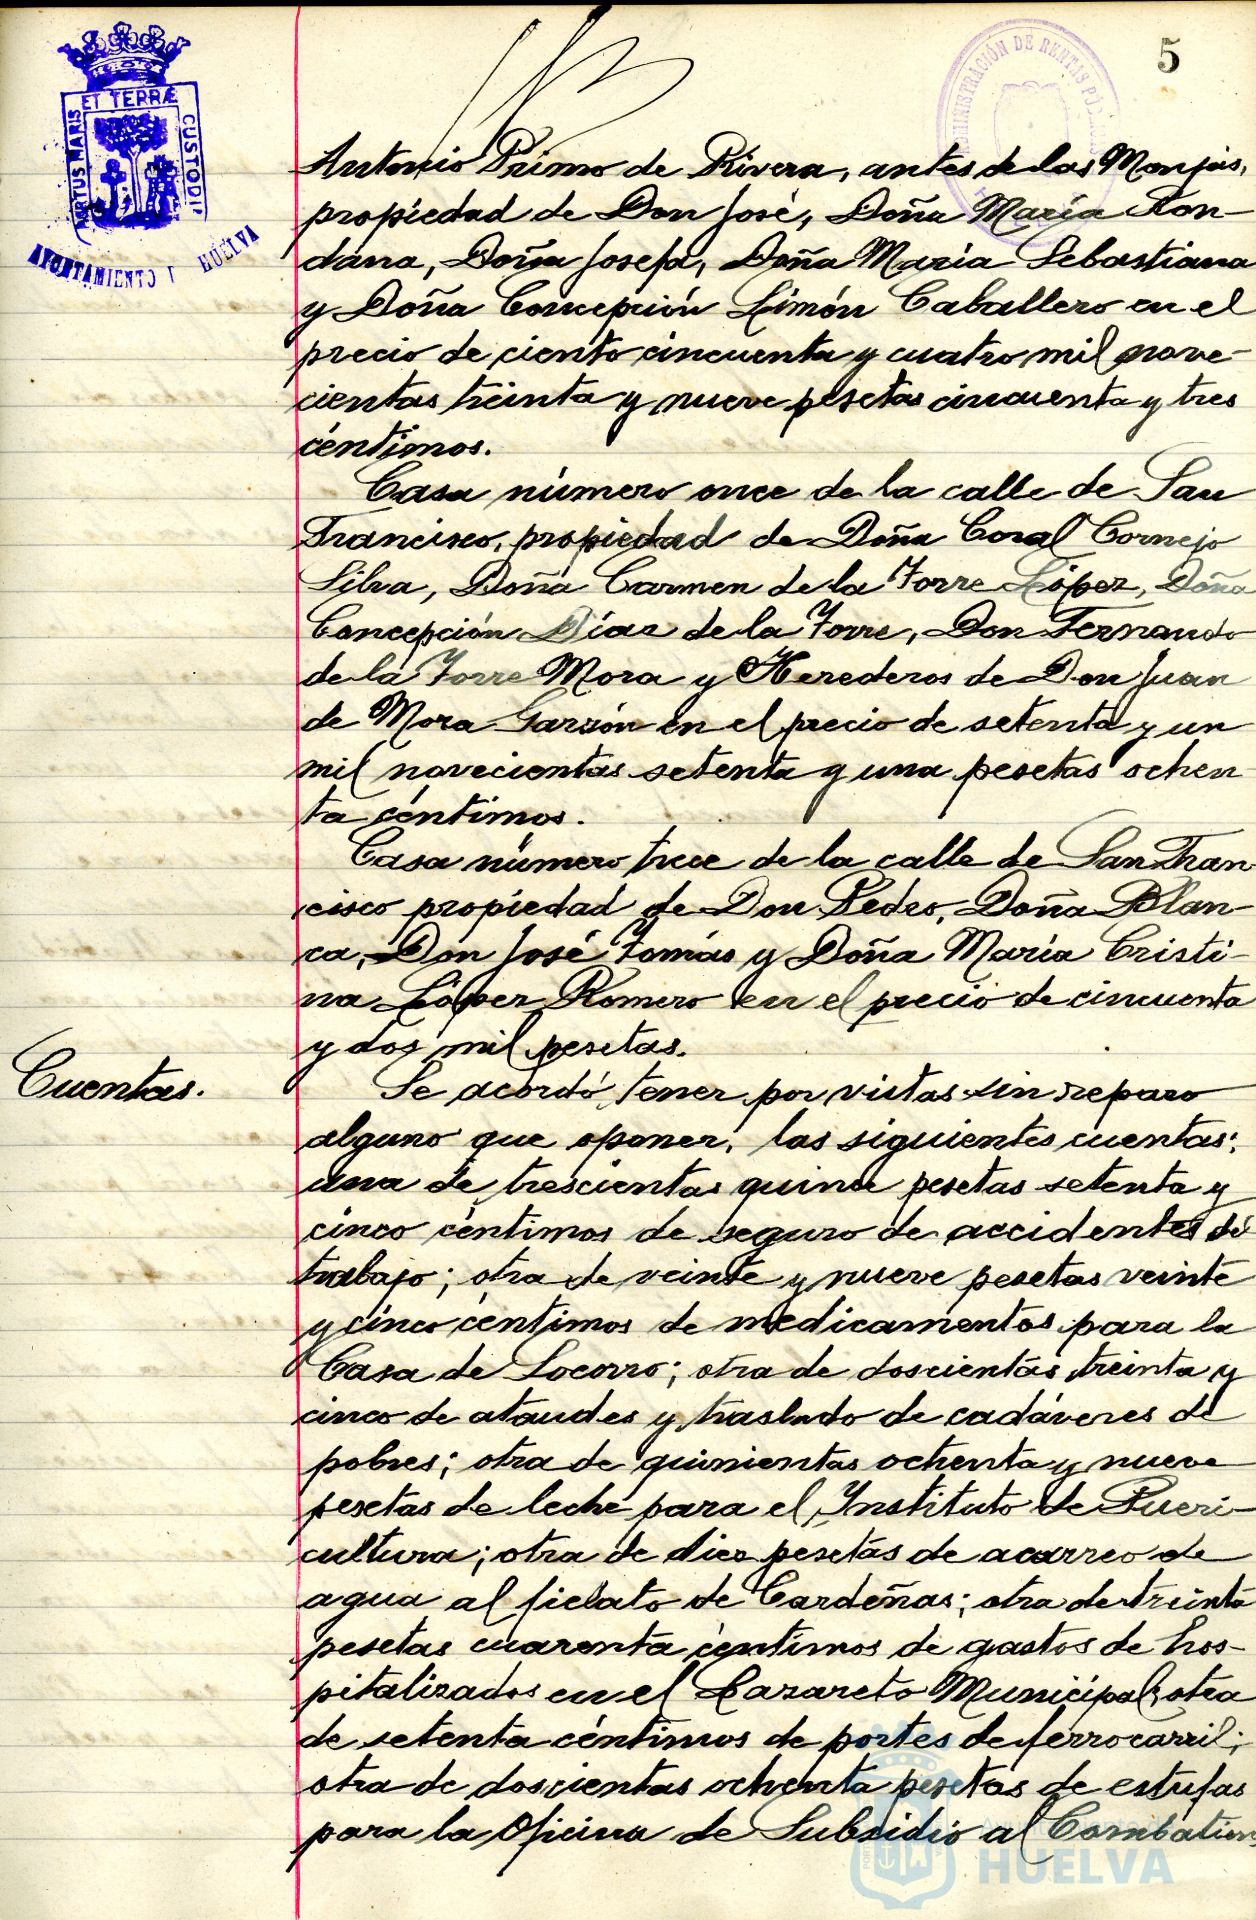 5
ADMINISTRACIÓN DE RENTAS
PORTUS MARIS ET TERRÆ CUSTODI
AYUNTAMIENTO HUELVA
Antonio Primo de Rivera, antes de las Monjas,
propiedad de Don José, Doña María Ron-
dana, Doña Josefa, Doña María Sebastiana
y Doña Concepción Limón Caballero en el
precio de ciento cincuenta y cuatro mil nove-
cientas treinta y nueve pesetas cincuenta y tres
céntimos.
Casa número once de la calle de San
Francisco, propiedad de Doña Coral Cornejo
Silva, Doña Carmen de la Torre López, Doña
Concepción Díaz de la Torre, Don Fernando
de la Torre Mora y Herederos de Don Juan
de Mora Garzón en el precio de setenta y un
mil novecientas setenta y una pesetas ochen-
ta céntimos.
Casa número trece de la calle de San Fran-
cisco propiedad de Don Pedro, Doña Blan-
ca, Don José Tomás y Doña María Cristi-
na López Romero en el precio de cincuenta
y dos mil pesetas.
Cuentas.
Se acordó tener por vistas sin reparo
alguno que oponer, las siguientes cuentas:
una de trescientas quince pesetas setenta y
cinco céntimos de seguro de accidentes de
trabajo; otra de veinte y nueve pesetas veinte
y cinco céntimos de medicamentos para la
Casa de Socorro; otra de doscientas treinta y
cinco de ataudes y traslado de cadáveres de
pobres; otra de quinientas ochenta y nueve
pesetas de leche para el Instituto de Pueri-
cultura; otra de diez pesetas de acarreo de
agua al fielato de Cardeñas; otra de treinta
pesetas cuarenta céntimos de gastos de hos-
pitalizados en el Lazareto Municipal; otra
de setenta céntimos de portes de ferrocarril;
otra de doscientas ochenta pesetas de estufas
para la Oficina de Subsidio al Combatien-
HUELVA